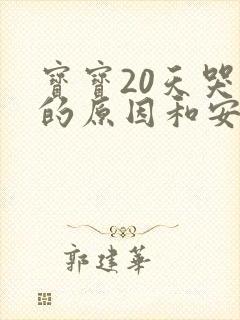 寶寶20天哭
的原因和安
郭建華